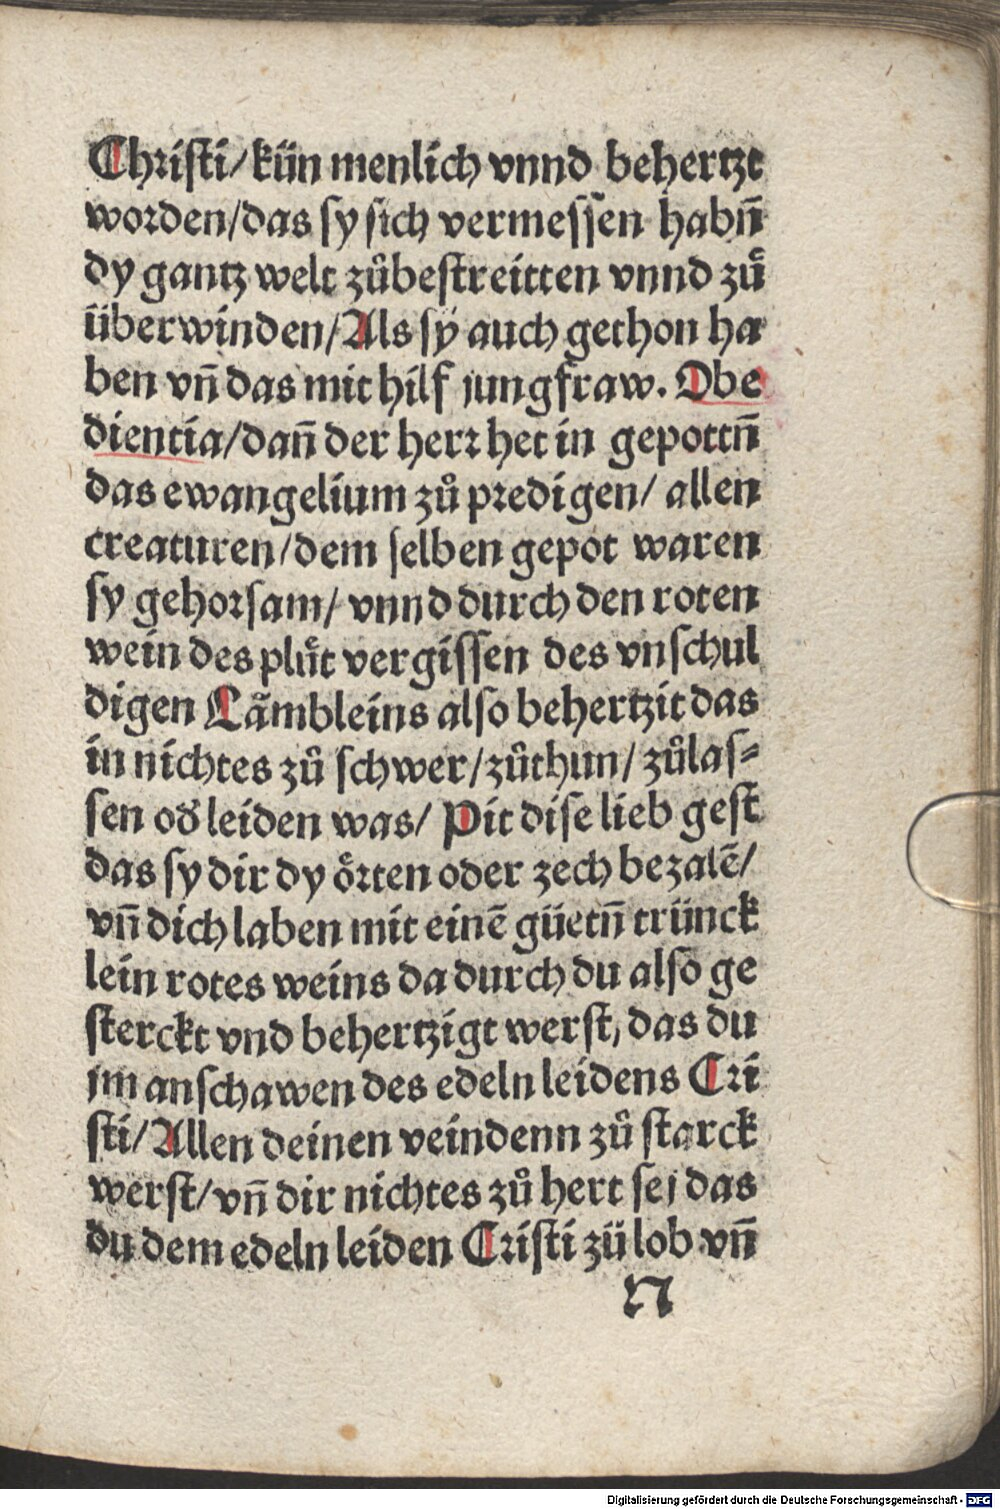 Christi/ kün menlich vnnd behertzt
worden/das sy sich vermessen habn̄
dy gantz welt zůbestreitten vnnd zů
überwinden/Als sÿ auch gethon ha
ben vn̄ das mit hilf jungfraw. Obe
dientia/dan̄ der herr het in gepottn̄
das ewangelium zů predigen/ allen
creaturen/dem selben gepot waren
sy gehorsam/ vnnd durch den roten
wein des plůt vergissen des vnschul
digen Lämbleins also behertzit das
in nichtes zů schwer/zůthun/ zůlas⸗
sen od̓ leiden was/ Pit dise lieb gest
das sy dir dy örten oder zech bezalē/
vn̄ dich laben mit einē güetn̄ trünck
lein rotes weins da durch du also ge
sterckt vnd behertzigt werst, das du
jm anschawen des edeln leidens Cri
sti/Allen deinen veindenn zů starck
werst/vn̄ dir nichtes zů hert sej das
du dem edeln leiden Cristi zü lob vn̄
N
Digitalisierung gefördert durch die Deutsche Forschungsgemeinschaft - DFG